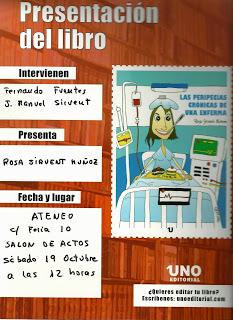 Presentación
del libro
Intervienen
Fernando Fuentes
J. Manuel Sirvent
Presenta
ROSA SIRVENT MUÑOZ
Fecha y lugar
ATENEO
c/ Feria 10
SALON DE ACTOS
sábado 19 octubre
a las 12 horas
LAS PERIPECIAS
CRÓNICAS DE
UNA ENFERMA
Rosa Sirvent Muñoz
U
UNO
EDITORIAL
¿Quieres editar tu libro?
Escríbenos: unoeditorial.com